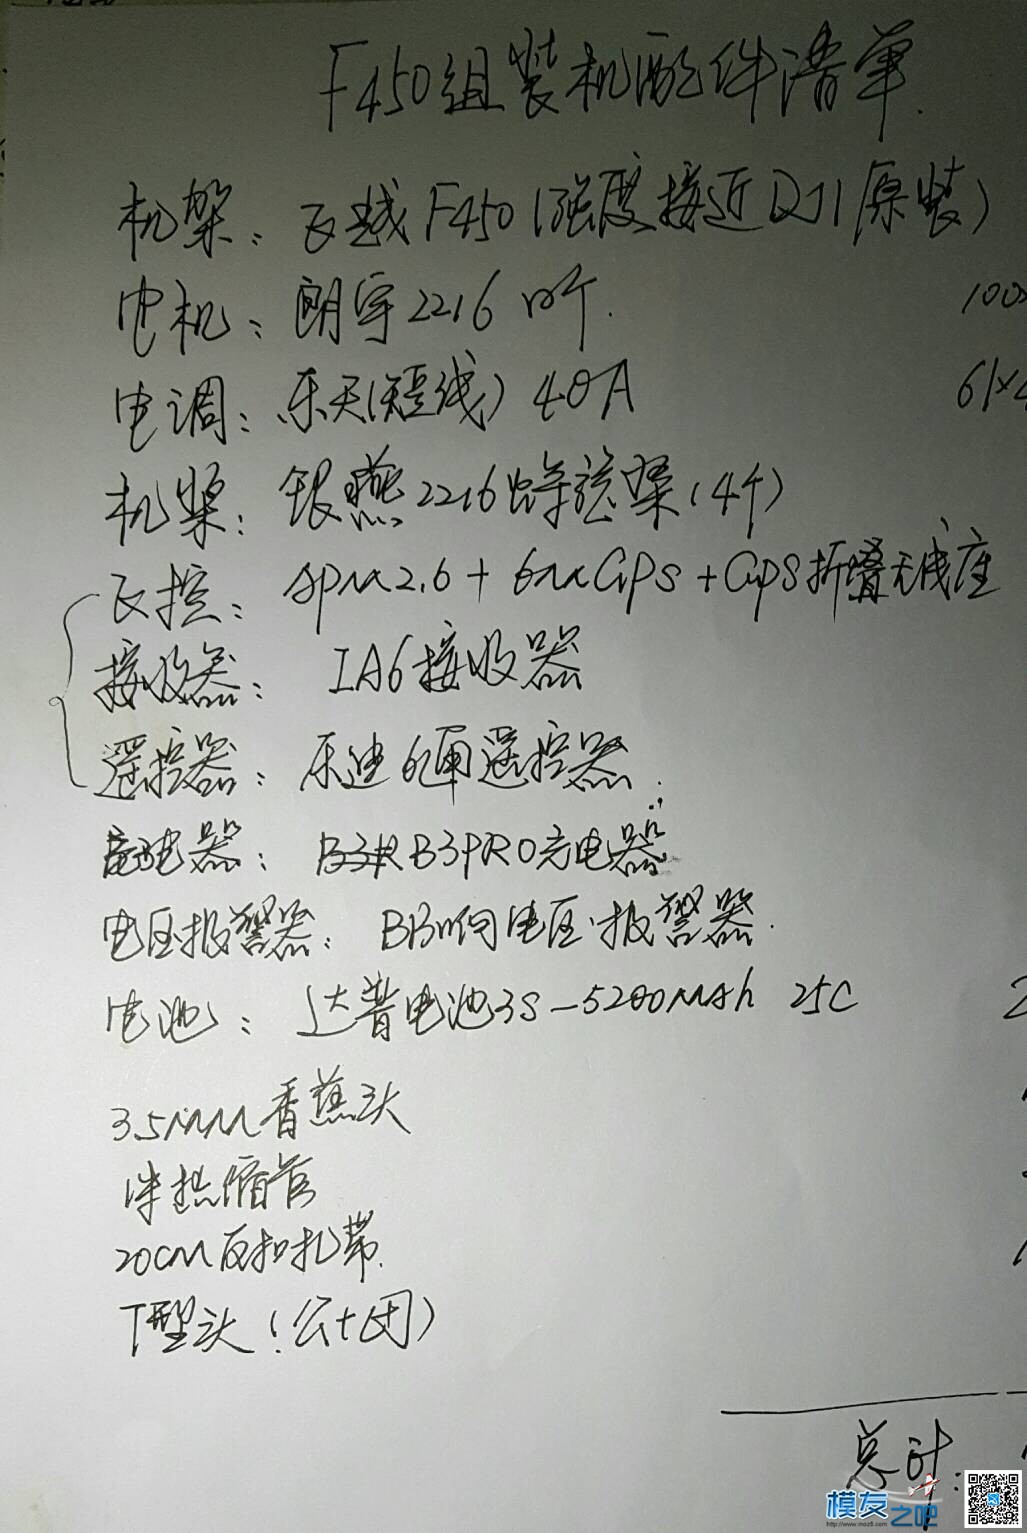 F450组装机配件清单.
机架: 飞越F450(强度接近DJI原装)
电机: 朗宇2216 四个. 100
电调: 乐天(短线) 40A 61×4
机桨: 银燕2216 桨(4个)
飞控: APM2.6 + 6M GPS + GPS折叠天线座
接收器: IA6接收器
遥控器: 乐迪6通遥控器.
电器: B3PRO充电器
电压报警器: BB响电压报警器.
电池: 达普电池3S-5200MAh 25C 2
3.5MM香蕉头
1米热缩管
20CM反扣扎带.
T型头(公+母)
总计:
模友之吧
http://www.moz8.com